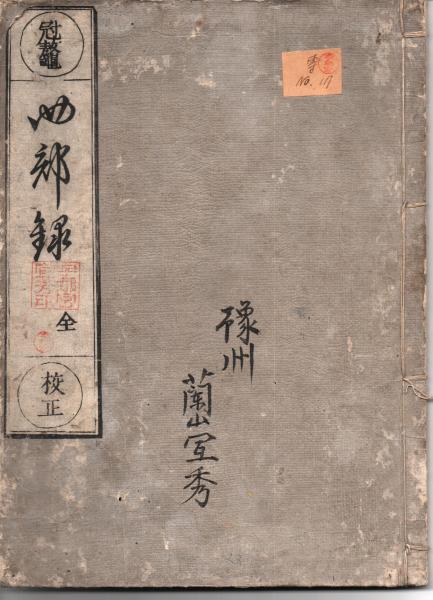 冠鼇
四部録
全
校正
No. 117
豫州
蘭山
秀